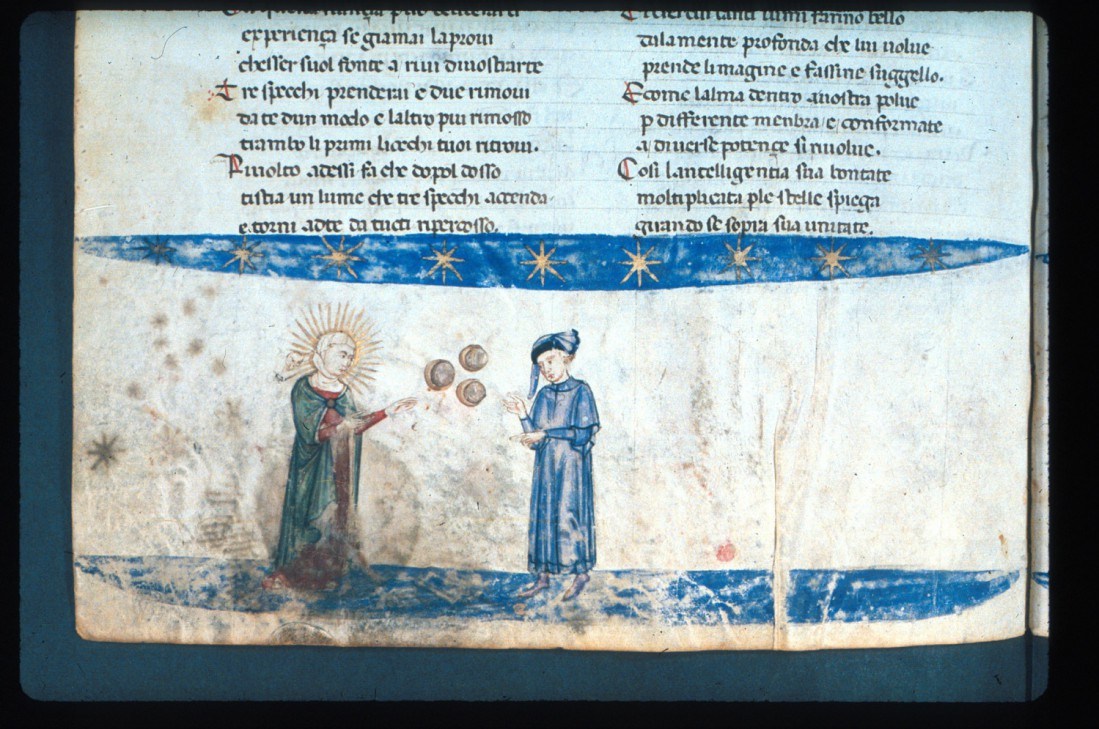 experiença se giamai laproui
chesser suol fonte a riui diuostrarte
Tre specchi prenderai e due rimoui
da te dun modo e laltro piu rimosso
tranbo li primi liocchi tuoi ritroui.
Riuolto adessi fa che dopol dosso
tistia un lume che tre specchi accenda
e torni adte da tucti ripercosso.
cui tanti lumi fanno bello
dalamente profonda che lui uolue
prende limagine e fassine suggello.
E come lalma dentro auostra polue
p differente menbra e conformate
a diuerse potençe si riuolue.
Cosi lantelligentia sua bontate
moltiplicata ple stelle spiega
girando se sopra sua unitate.